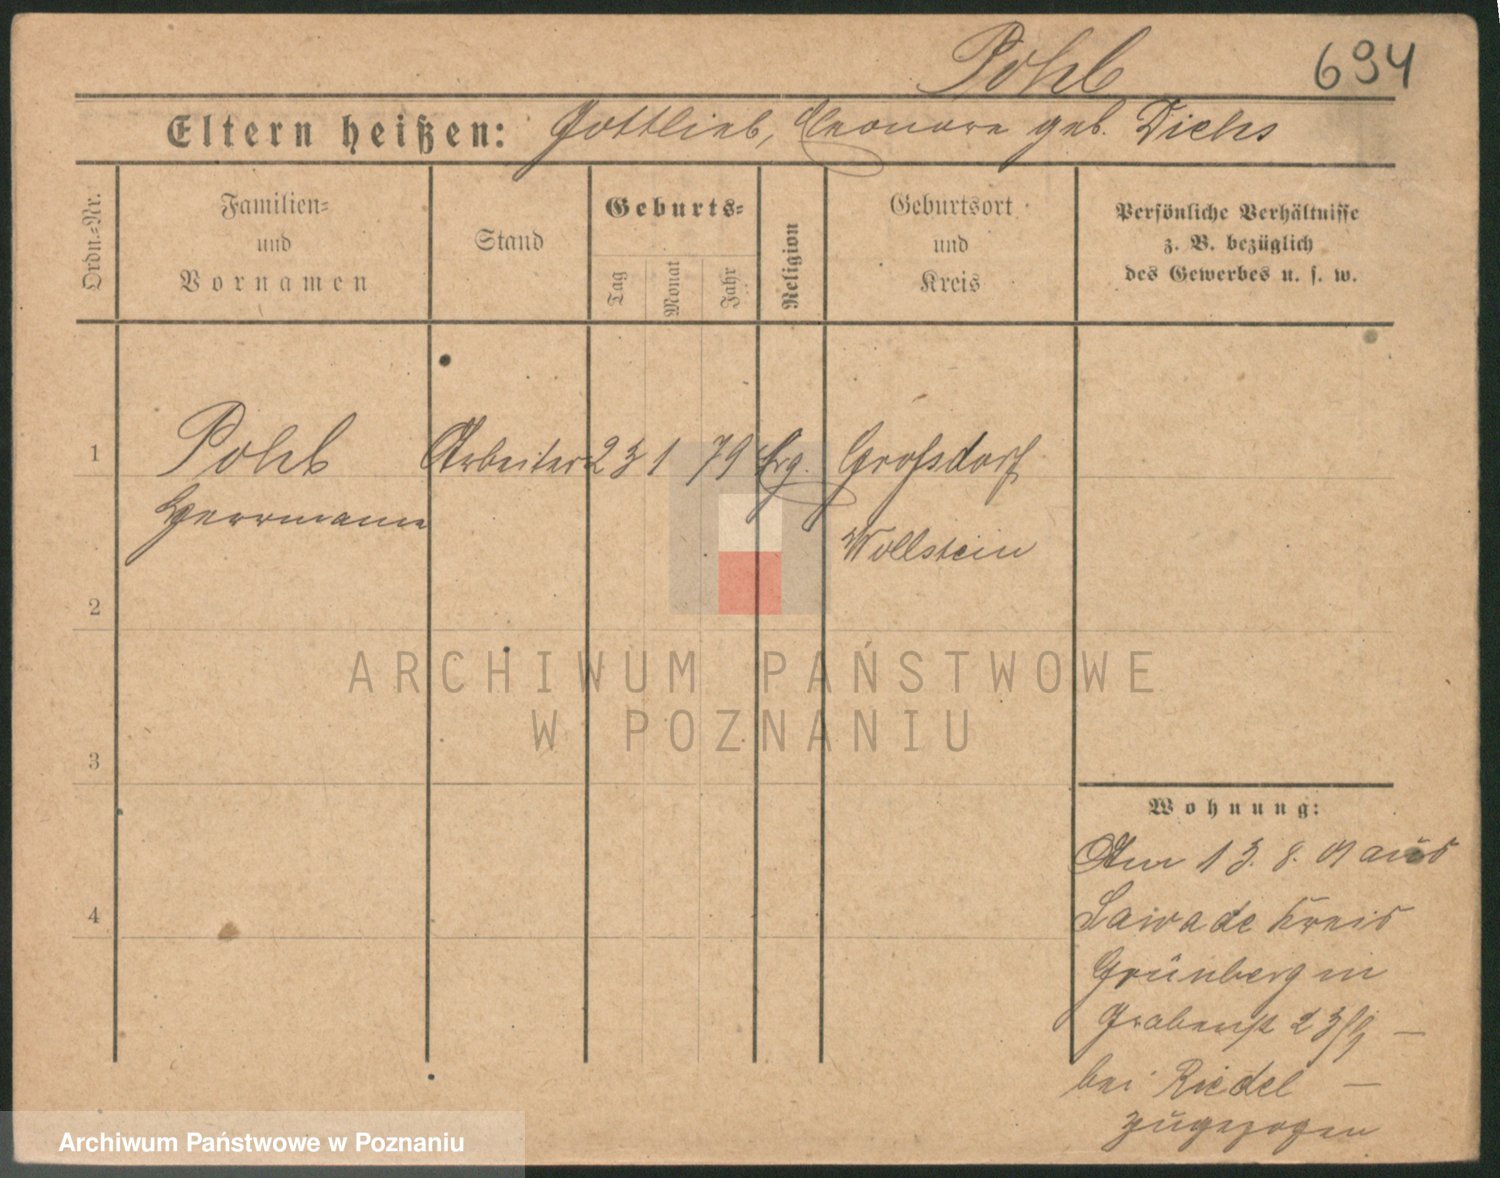 Pohl
694
Eltern heißen: Gottlieb, Eleonore geb. Dichs
Ordn.-Nr.
Familien-
und
Vornamen
Stand
Geburts-
Tag
Monat
Jahr
Religion
Geburtsort
und
Kreis
Persönliche Verhältnisse
z. B. bezüglich
des Gewerbes u. s. w.
1 Pohl Arbeiter 23 1 79 Evg. Großdorf
Herrmann
Wollstein
2
3
4
Wohnung:
Am 13. 8. 01 aus
Lawade Kreis
Grünberg in
Grabenst 23/9 —
bei Riedel —
zugezogen
ARCHIWUM PAŃSTWOWE
W POZNANIU
Archiwum Państwowe w Poznaniu